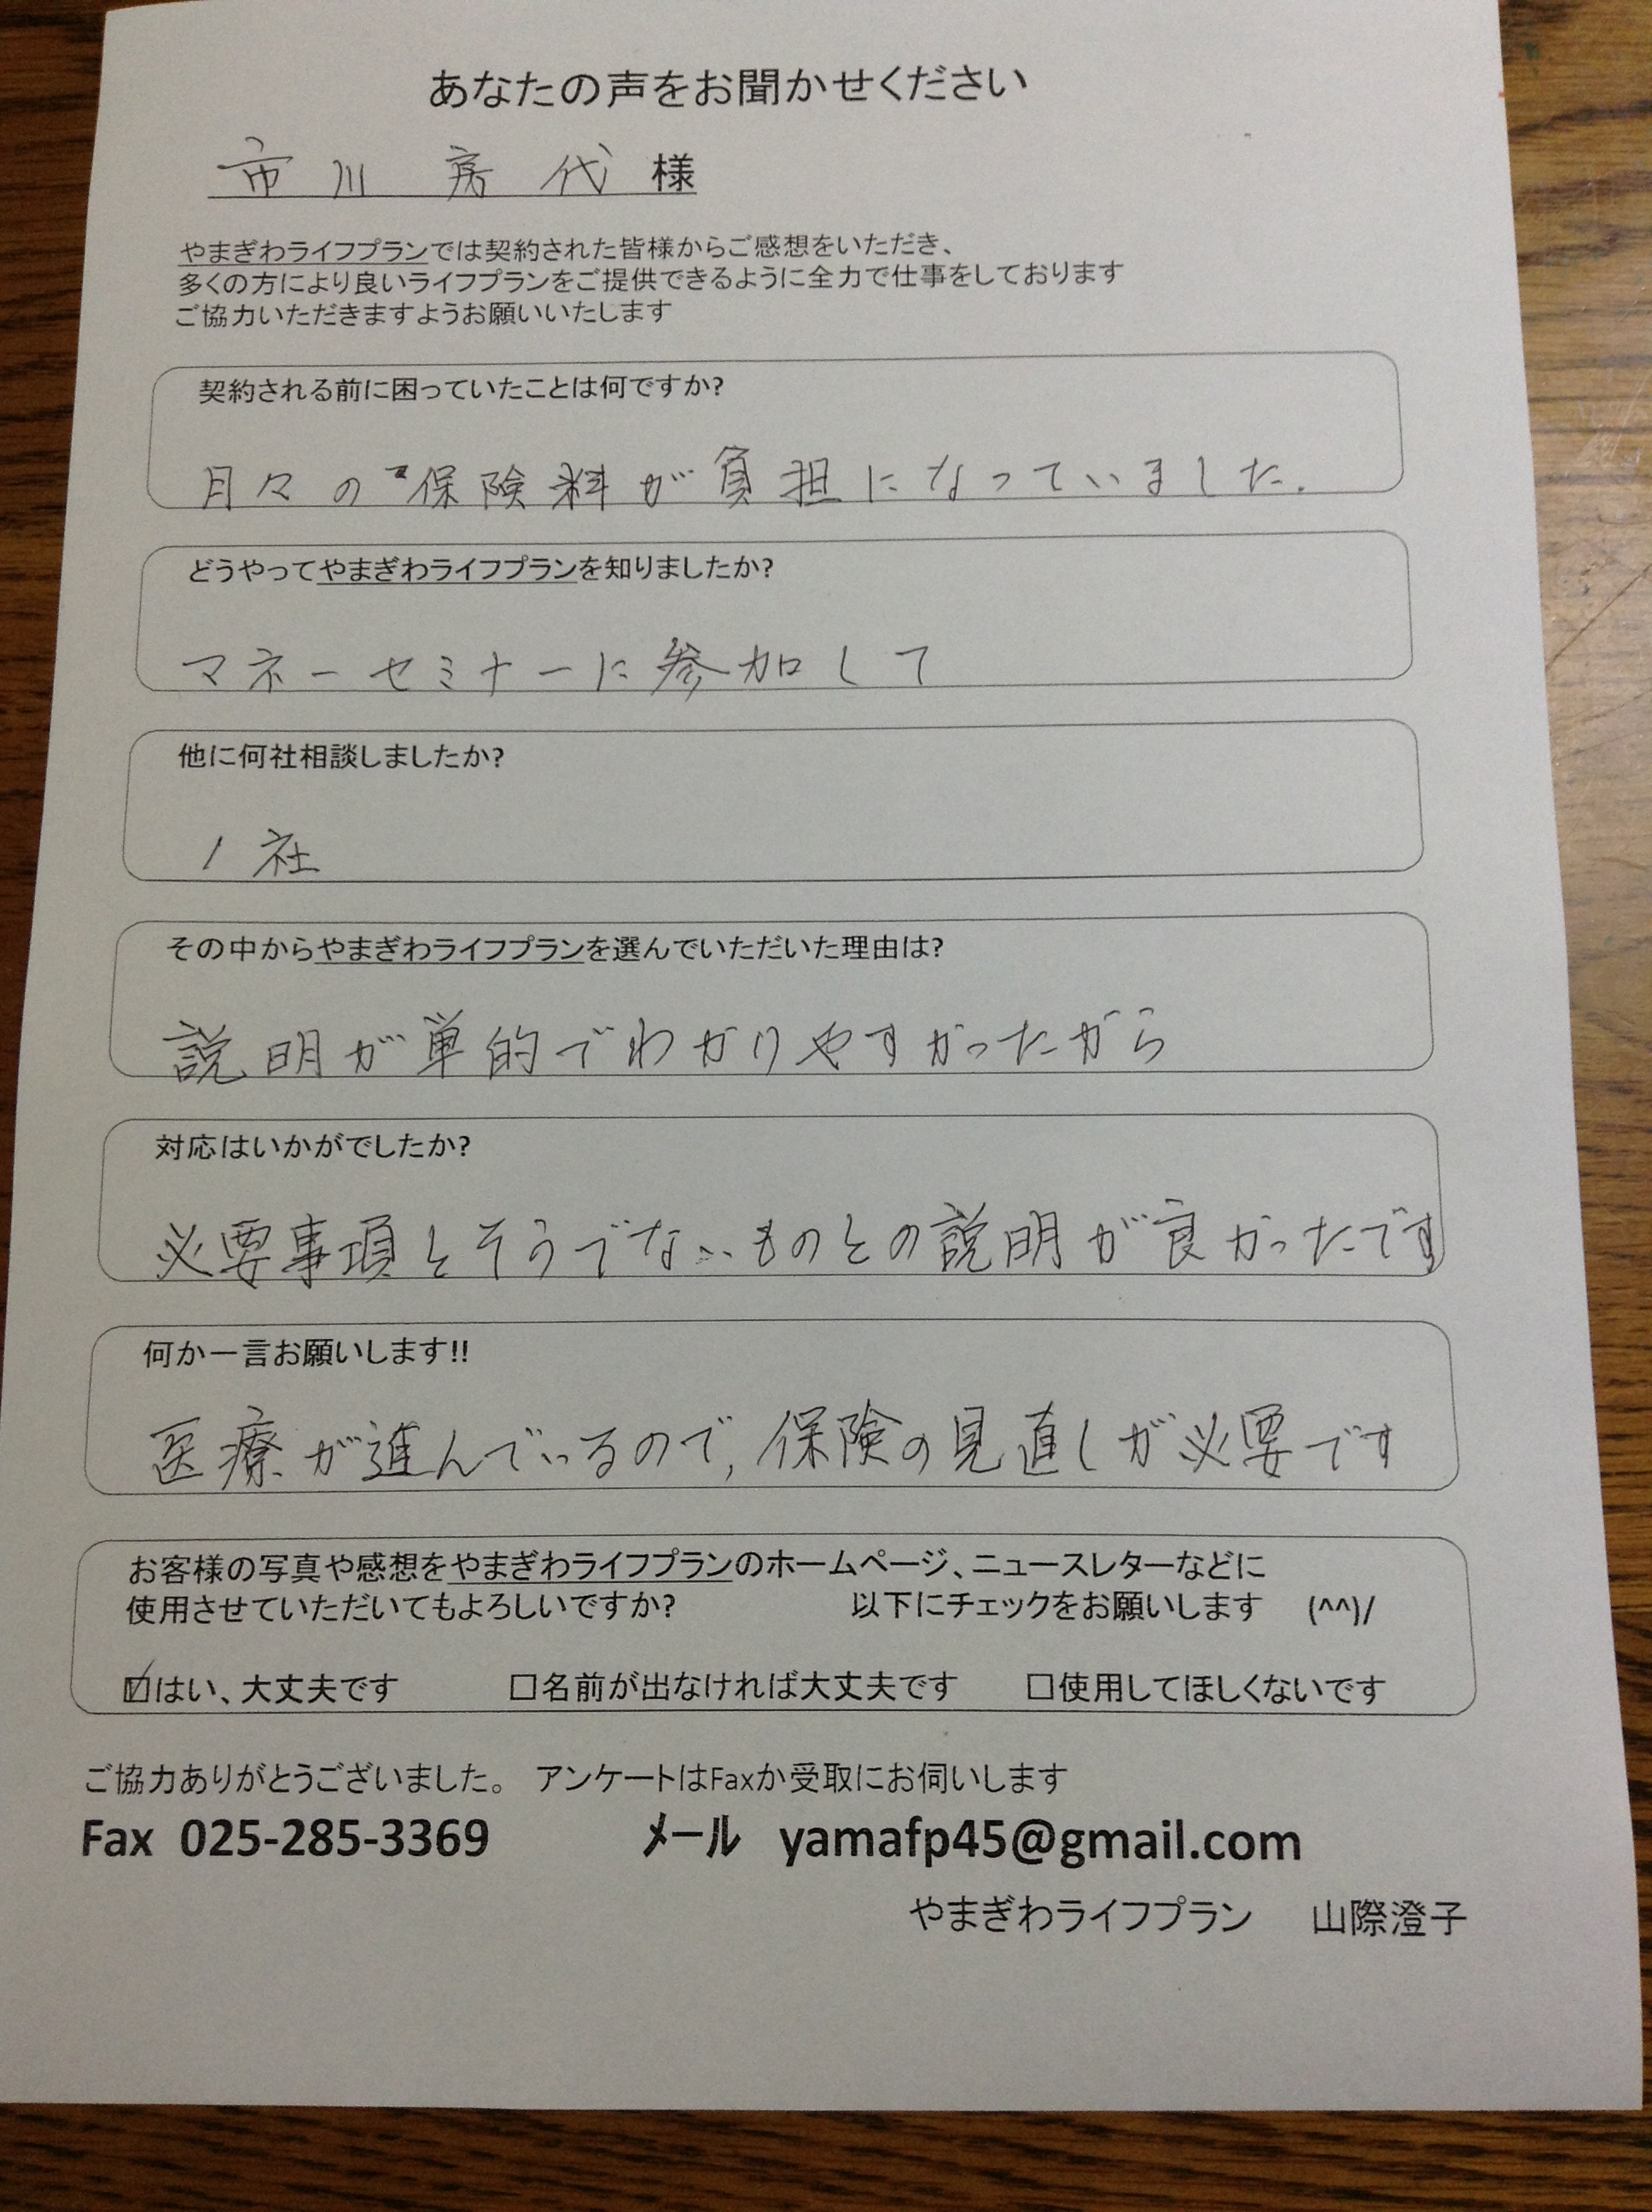 あなたの声をお聞かせください
市川 房代 様
やまぎわライフプランでは契約された皆様からご感想をいただき、
多くの方により良いライフプランをご提供できるように全力で仕事をしております
ご協力いただきますようお願いいたします
契約される前に困っていたことは何ですか?
月々の保険料が負担になっていました.
どうやってやまぎわライフプランを知りましたか?
マネーセミナーに参加して
他に何社相談しましたか?
1社
その中からやまぎわライフプランを選んでいただいた理由は?
説明が単的でわかりやすかったから
対応はいかがでしたか?
必要事項とそうでないものとの説明が良かったです
何か一言お願いします!!
医療が進んでいるので,保険の見直しが必要です
お客様の写真や感想をやまぎわライフプランのホームページ、ニュースレターなどに
使用させていただいてもよろしいですか? 以下にチェックをお願いします (^^)/
☑はい、大丈夫です □名前が出なければ大丈夫です □使用してほしくないです
ご協力ありがとうございました。 アンケートはFaxか受取にお伺いします
Fax 025-285-3369 メール yamafp45@gmail.com
やまぎわライフプラン 山際澄子